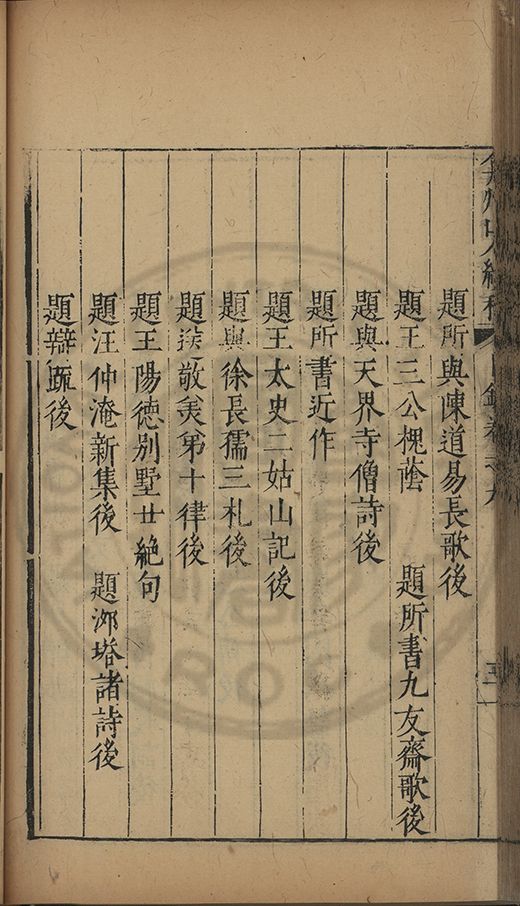 弇州山人續稿 目錄卷之九
題所與陳道易長歌後
題王三公槐蔭 題所書九友齋歌後
題與天界寺僧詩後
題所書近作
題王太史二姑山記後
題與徐長孺三札後
題送敬美弟十律後
題王陽德別墅廿絶句
題汪仲淹新集後 題邠塔諸詩後
題辯疏後